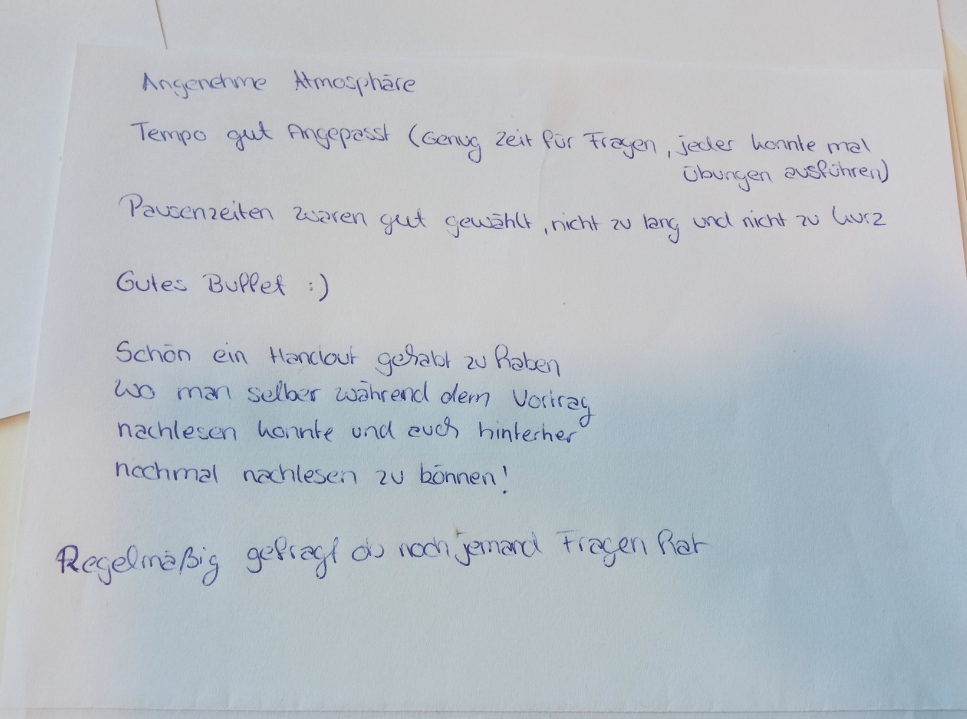 Angenehme Atmosphäre
Tempo gut Angepasst (Genug Zeit für Fragen, jeder konnte mal
Übungen ausführen)
Pausenzeiten waren gut gewählt, nicht zu lang und nicht zu kurz
Gutes Buffet :)
Schön ein Handout gehabt zu haben
wo man selber während dem Vortrag
nachlesen konnte und auch hinterher
nochmal nachlesen zu können!
Regelmäßig gefragt ob noch jemand Fragen hat